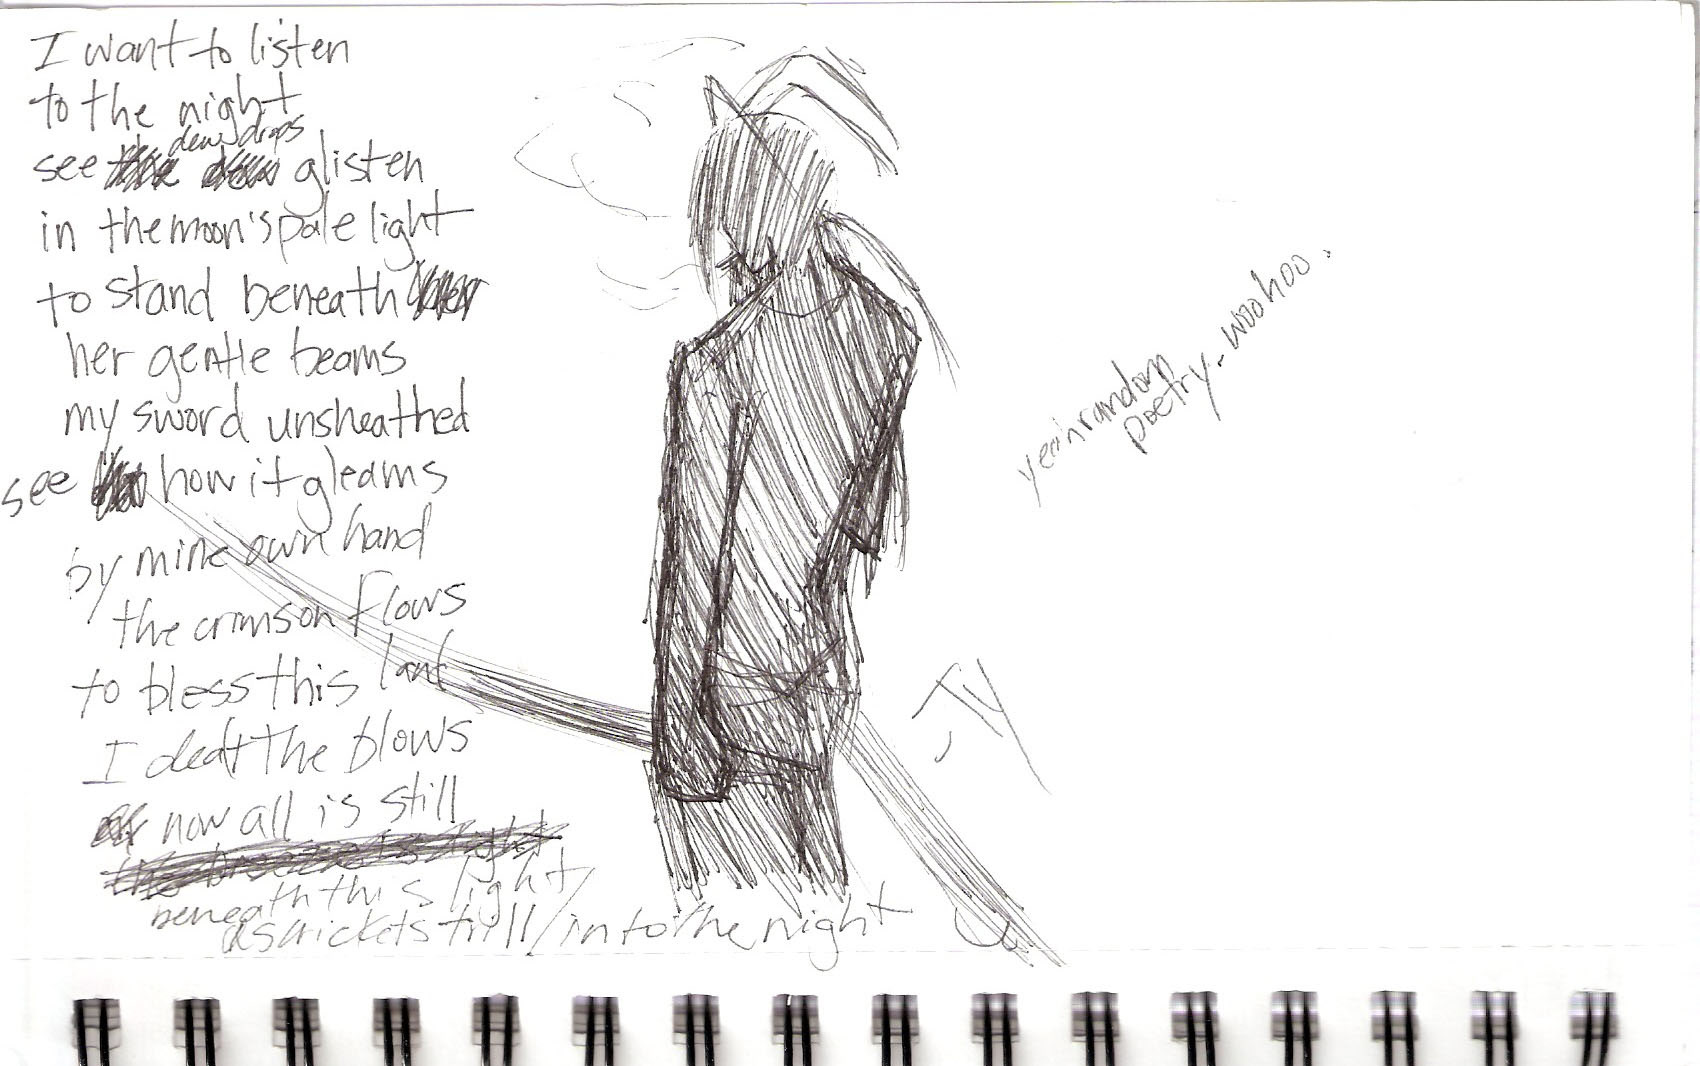 I want to listen
to the night
see dew drops glisten
in the moon's pale light
to stand beneath
her gentle beams
my sword unsheathed
see how it gleams
by mine own hand
the crimson flows
to bless this land
I dealt the blows
now all is still
beneath this light/
as crickets trill/into the night
-Ty
yeah random
poetry. woohoo.